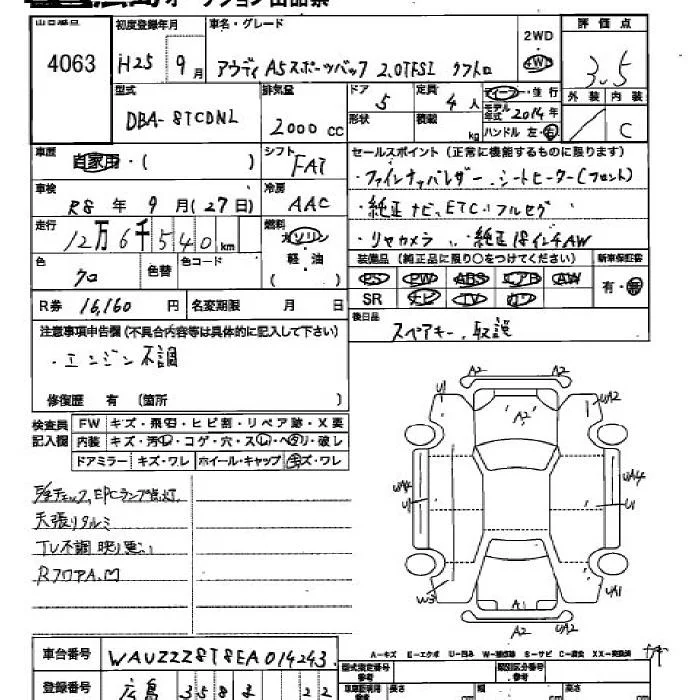 オークション出品票
出品番号 初度登録年月 車名・グレード 2WD 評価点
4063 H25 9月 アウディ A5スポーツバック 2.0TFSI クワトロ 4WD 3.5
型式 排気量 ドア 5 定員 4人 ディーラー・並行 外装 内装
DBA-8TCDNL 2000 cc 形状 積載 kg モデル年式 2014年 C
ハンドル 左・右
車歴 自家用・( ) シフト FAT セールスポイント(正常に機能するものに限ります)
・シートヒーター(フロント)
車検 R8年 9月(27日) 冷房 AAC ・純正ナビ、ETC、フルセグ
走行 12万6千540km 燃料 ガソリン ・リヤカメラ ・純正18インチAW
軽油
( )
色 クロ 色替 色コード 装備品(純正品に限り○をつけてください) 新車保証書
PS PW ABS エアB AW 有・無
R券 16,160円 名変期限 月 日 SR ナビ TV カワ
注意事項申告欄(不具合内容等は具体的に記入して下さい) 後日品 スペアキー、取説
・エンジン不調
修復歴 有 (箇所 )
検査員記入欄 FW キズ・飛石・ヒビ割・リペア跡・X要
内装 キズ・汚れ・コゲ・穴・スレ・ヘタリ・破レ
ドアミラー キズ・ワレ ホイール・キャップ キズ・ワレ
EPCランプ点灯
天張りタルミ
TV不調 映り悪い
A2
U1 A2 UA2
A2
UA4 U1 U1 UA4
W3 A1 UA1
A2 UA2
A-キズ E-エクボ U-凹み W-補修跡 S-サビ C-腐食 XX-交換済
車台番号 WAUZZZ8T8EA014243
型式指定番号 類別区分番号
登録番号 広島 358
長さ 幅 高さ